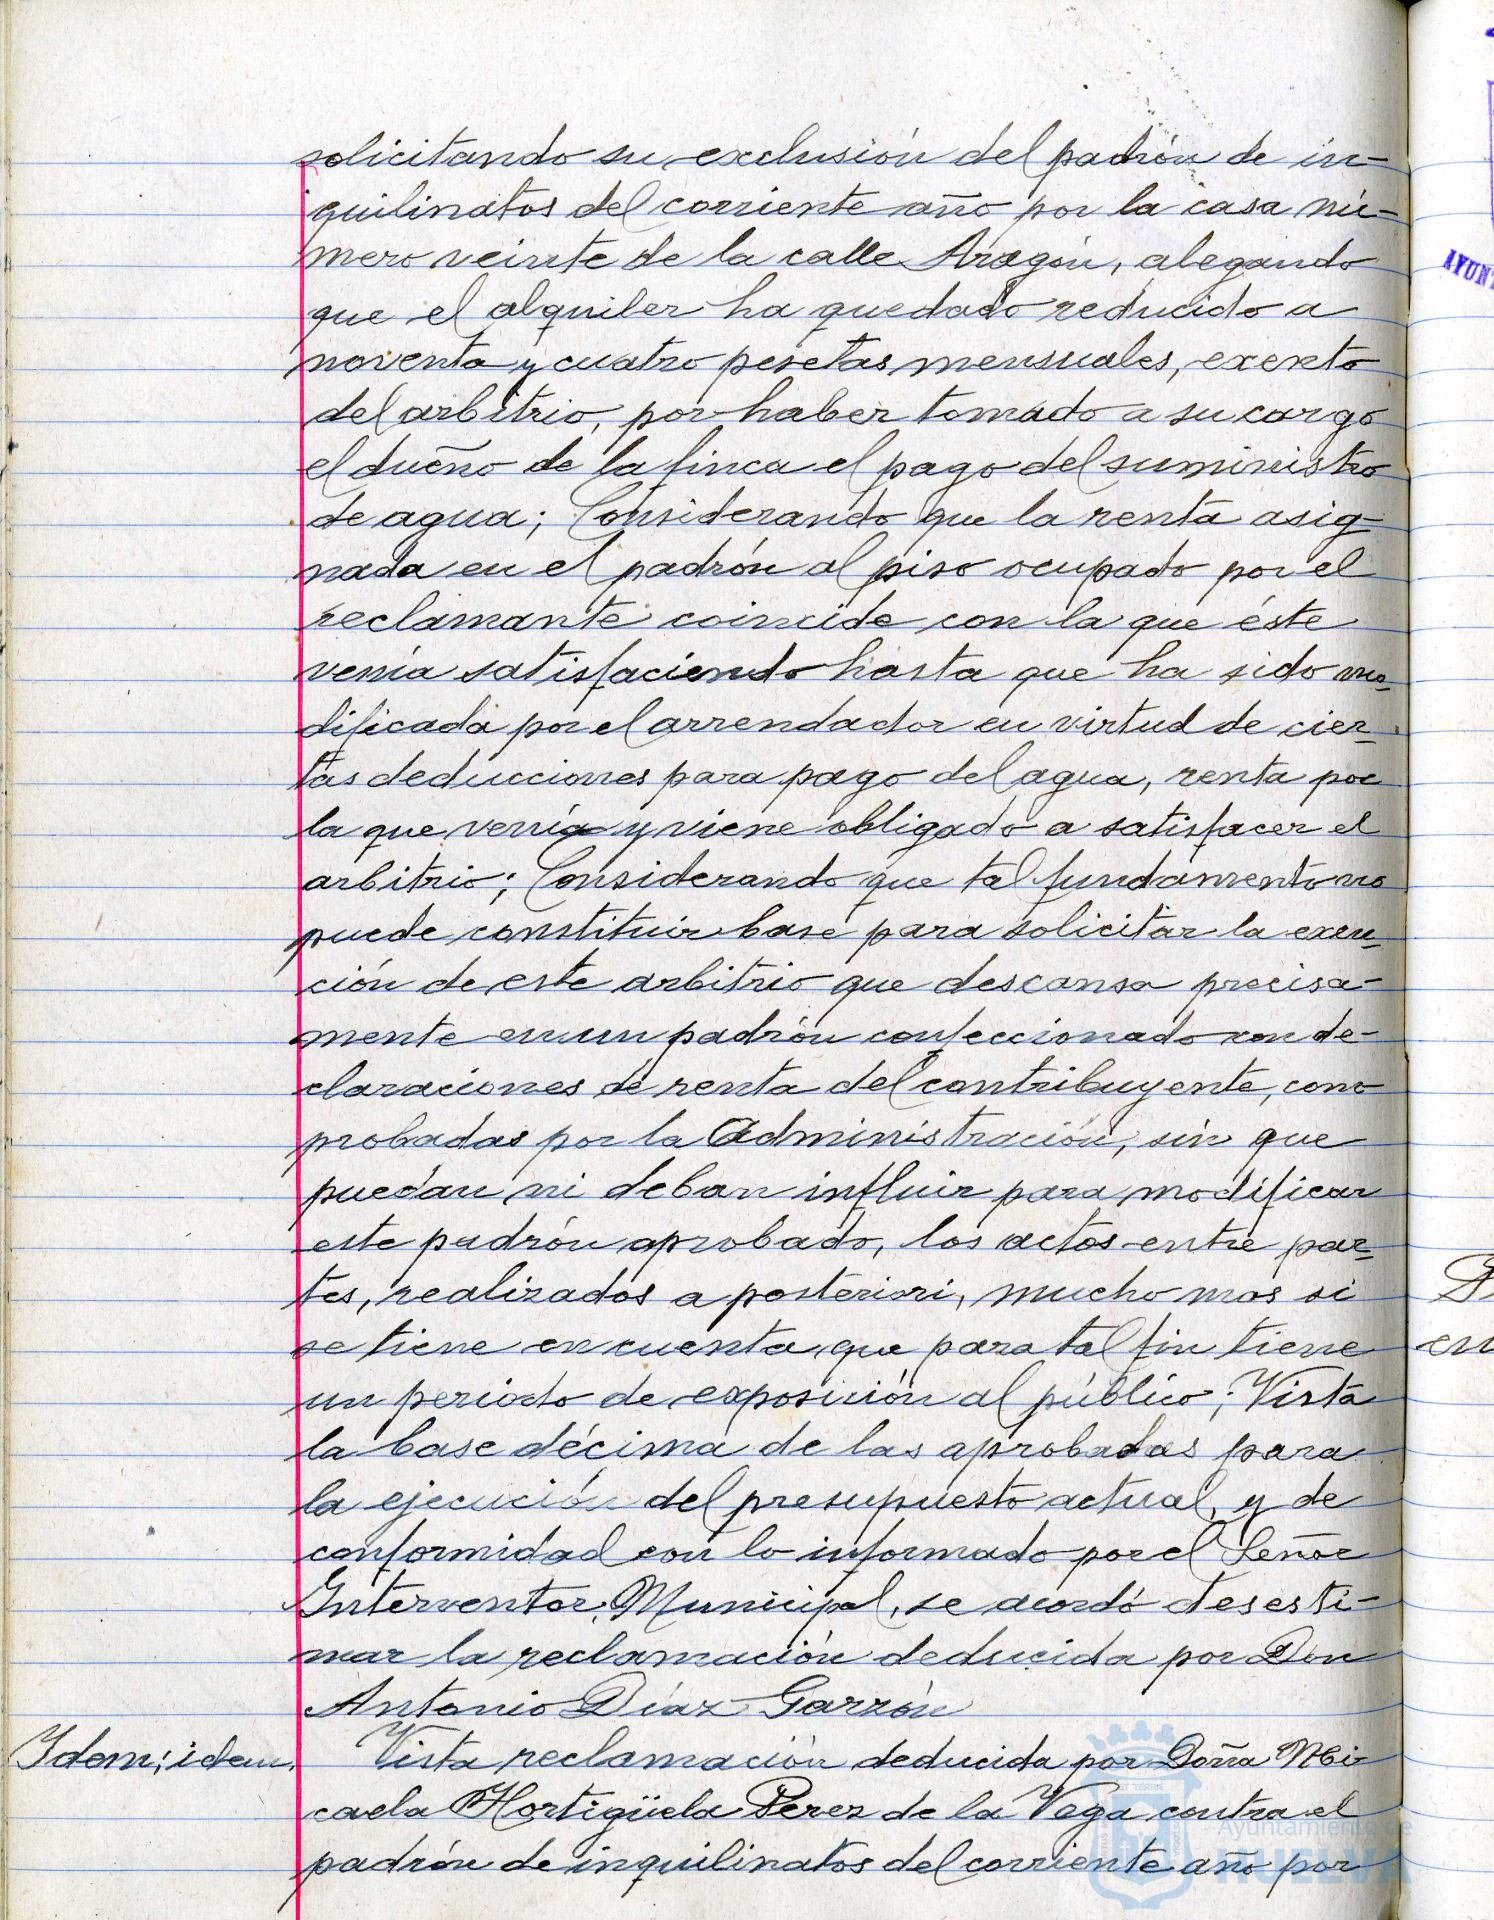 solicitando su exclusión del padrón de in-
quilinatos del corriente año por la casa nú-
mero veinte de la calle Aragón, alegando
que el alquiler ha quedado reducido a
noventa y cuatro pesetas mensuales, exento
del arbitrio, por haber tomado a su cargo
el dueño de la finca el pago del suministro
de agua; Considerando que la renta asig-
nada en el padrón al piso ocupado por el
reclamante coincide con la que éste
venía satisfaciendo hasta que ha sido mo-
dificada por el arrendador en virtud de cier-
tas deducciones para pago del agua, renta por
la que venía y viene obligado a satisfacer el
arbitrio; Considerando que tal fundamento no
puede constituir base para solicitar la exen-
ción de este arbitrio que descansa precisa-
mente en un padrón confeccionado con de-
claraciones de renta del contribuyente, com-
probadas por la Administración, sin que
puedan ni deban influir para modificar
este padrón aprobado, los actos entre par-
tes, realizados a posteriori, mucho mas si
se tiene en cuenta que para tal fin tiene
un periodo de exposición al público; Vista
la base décima de las aprobadas para
la ejecución del presupuesto actual, y de
conformidad con lo informado por el Señor
Interventor Municipal, se acordó desesti-
mar la reclamación deducida por Don
Antonio Díaz Garzón
Idem; idem. Vista reclamación deducida por Doña Mi-
caela Hortigüela Perez de la Vega contra el
padrón de inquilinatos del corriente año por
Ayuntamiento de
HUELVA
AYUN
en